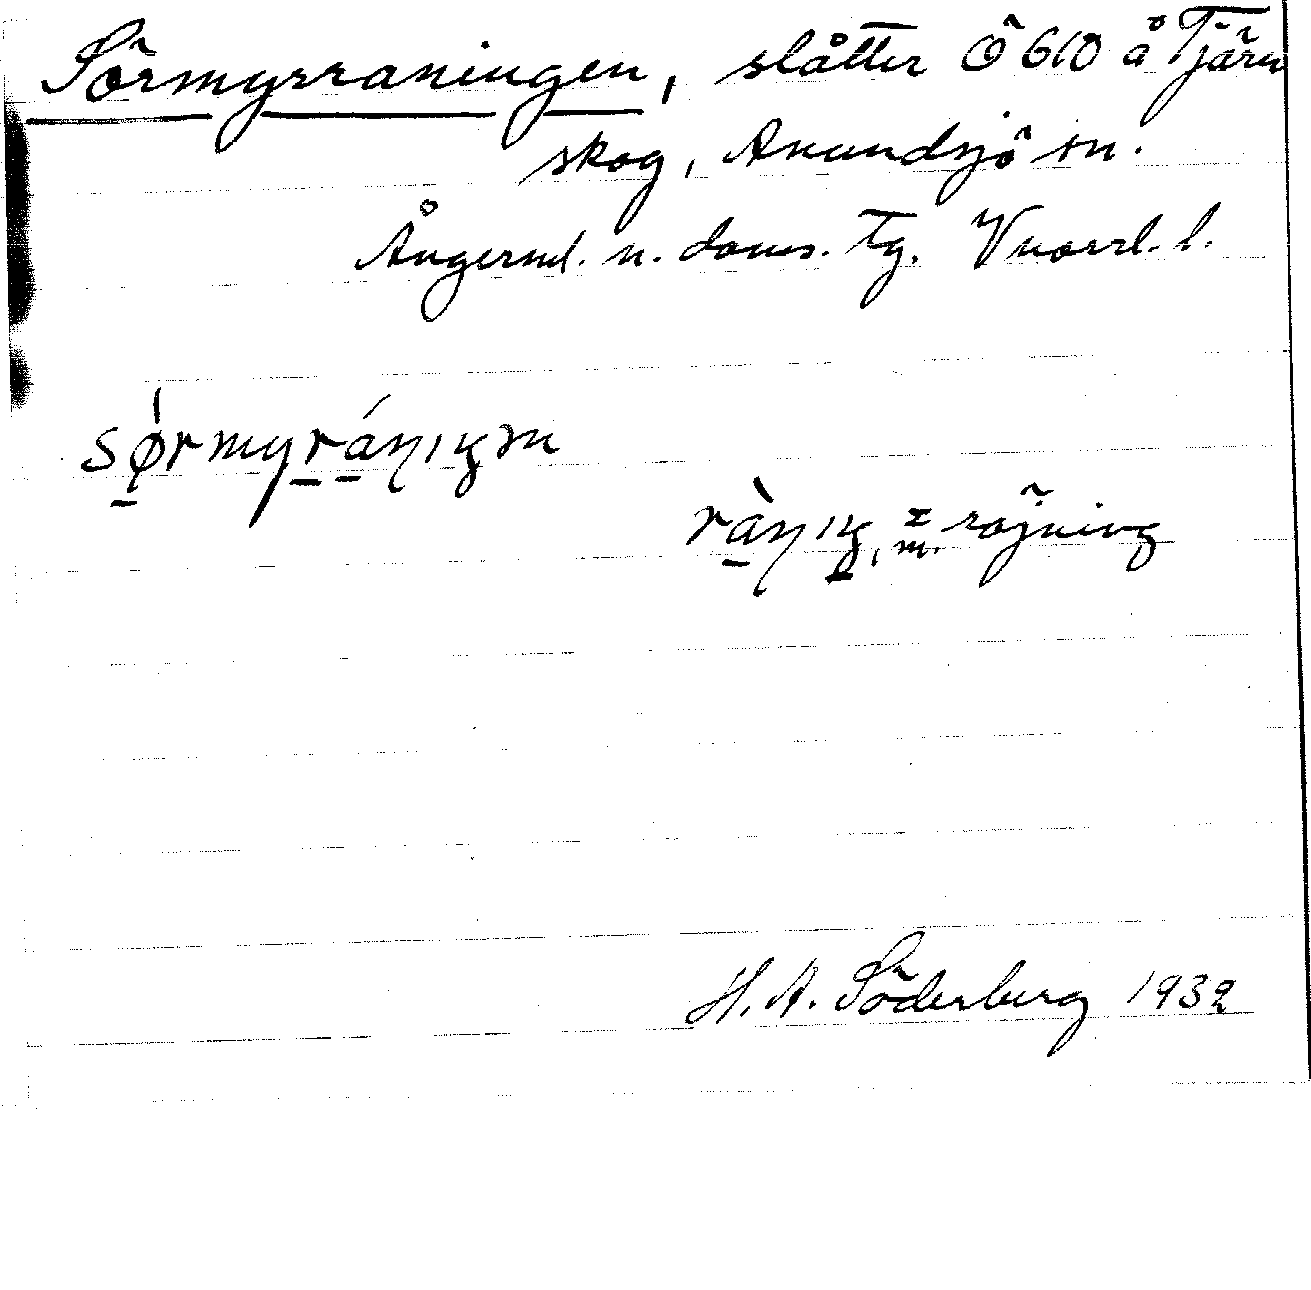 Sörmyrraningen, slåtter Ö 610 å Tjärn
skog, Anundsjö sn.
Ångerml. n. doms. Tg. Vnorrl. l.
sørmyránıŋm
rànıŋ, m. = röjning
H. A. Söderberg 1932